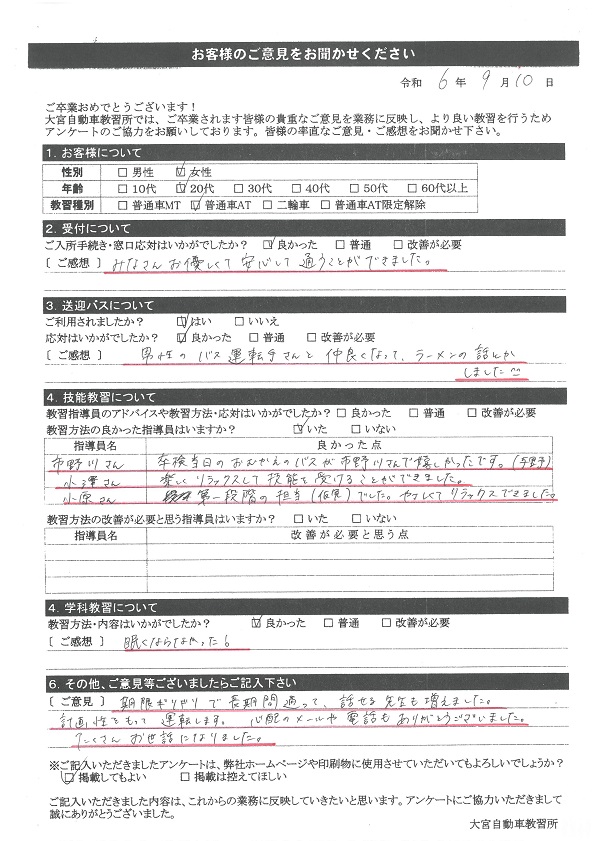 お客様のご意見をお聞かせください
令和 6 年 9 月 10 日
ご卒業おめでとうございます！
大宮自動車教習所では、ご卒業されます皆様の貴重なご意見を業務に反映し、より良い教習を行うため
アンケートのご協力をお願いしております。皆様の率直なご意見・ご感想をお聞かせ下さい。
1. お客様について
性別 □ 男性 ☑ 女性
年齢 □ 10代 ☑ 20代 □ 30代 □ 40代 □ 50代 □ 60代以上
教習種別 □ 普通車MT ☑ 普通車AT □ 二輪車 □ 普通車AT限定解除
2. 受付について
ご入所手続き・窓口応対はいかがでしたか？ ☑ 良かった □ 普通 □ 改善が必要
[ ご感想 ] みなさんお優しくて安心して通うことができました。
3. 送迎バスについて
ご利用されましたか？ ☑ はい □ いいえ
応対はいかがでしたか？ ☑ 良かった □ 普通 □ 改善が必要
[ ご感想 ] 男性のバス運転手さんと仲良くなって、ラーメンの話とか
しました
4. 技能教習について
教習指導員のアドバイスや教習方法・応対はいかがでしたか？ □ 良かった □ 普通 □ 改善が必要
教習方法の良かった指導員はいますか？ ☑ いた □ いない
指導員名 良かった点
市野川さん 卒検当日のおむかえのバスが市野川さんで嬉しかったです。(与野)
小澤さん 楽しくリラックスして技能を受けることができました。
小原さん 第一段階の担当(仮免)でした。やさしくてリラックスできました。
教習方法の改善が必要と思う指導員はいますか？ □ いた □ いない
指導員名 改善が必要と思う点
4. 学科教習について
教習方法・内容はいかがでしたか？ ☑ 良かった □ 普通 □ 改善が必要
[ ご感想 ] 眠くならなかった！
6. その他、ご意見等ございましたらご記入下さい
[ ご意見 ] 期限ギリギリで長期間通って、話せる先生も増えました。
計画性をもって運転します。 心配のメールや電話もありがとうございました。
たくさんお世話になりました。
※ご記入いただきましたアンケートは、弊社ホームページや印刷物に使用させていただいてもよろしいでしょうか？
☑ 掲載してもよい □ 掲載は控えてほしい
ご記入いただきました内容は、これからの業務に反映していきたいと思います。アンケートにご協力いただきまして
誠にありがとうございました。
大宮自動車教習所